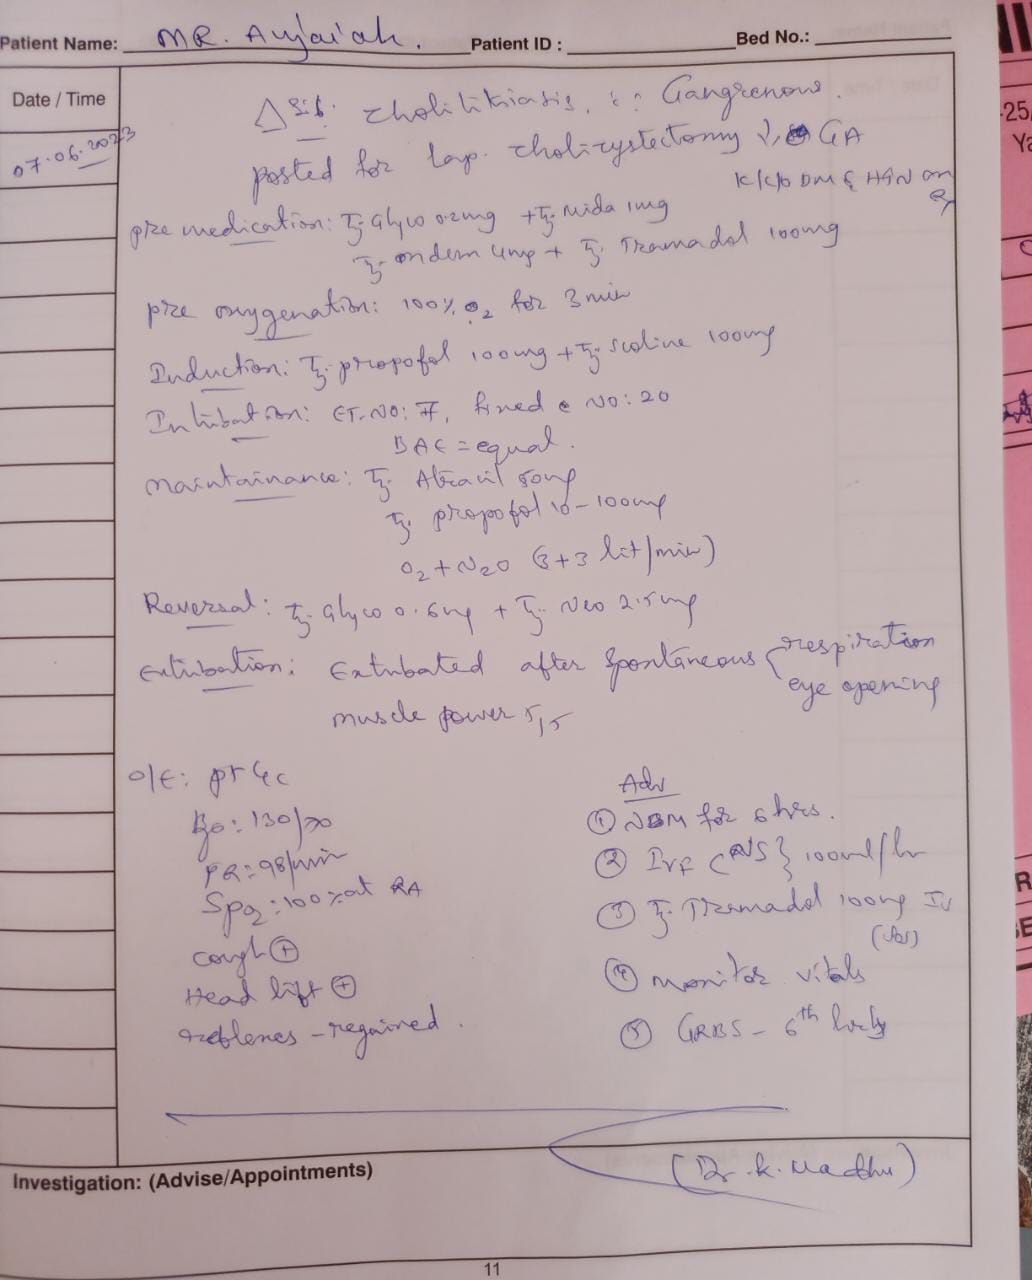 Patient Name: MR. Anjaiah. Patient ID : Bed No.:
Date / Time
07.06.2023
Δsis. cholilithiasis, Gangrenous.
posted for lap. cholicystectomy GA
K/c/o DM & HTN on
pre medication: Inj. Glyco 0.2mg + Inj. Mida 1mg
Inj. ondem 4mg + Inj. Tramadol 100mg
pre oxygenation: 100% O2 for 3 min
Induction: Inj. propofol 100mg + Inj. scoline 100mg
Intubation: ET. NO: 7, fixed c NO: 20
BAE = equal.
maintainance: Inj. Atracil 50mg
Inj. propofol 10-100mg
O2 + N2O (3+3 lit/min)
Reversal: Inj. Glyco 0.6mg + Inj. Neo 2.5mg
Extubation: Extubated after spontaneous { respiration
eye opening
muscle power 5/5
O/E: pt
Adv
Bp: 130/70
① NBM for 6 hrs.
PR: 98/min
② IVF 100ml/hr
SpO2: 100% at RA
③ Inj. Tramadol 100mg IV
(sos)
cough ⊕
④ monitor vitals
Head lift ⊕
reflexes - regained.
⑤ GRBS - 6th hrly
(Dr. K. Madhu)
Investigation: (Advise/Appointments)
11